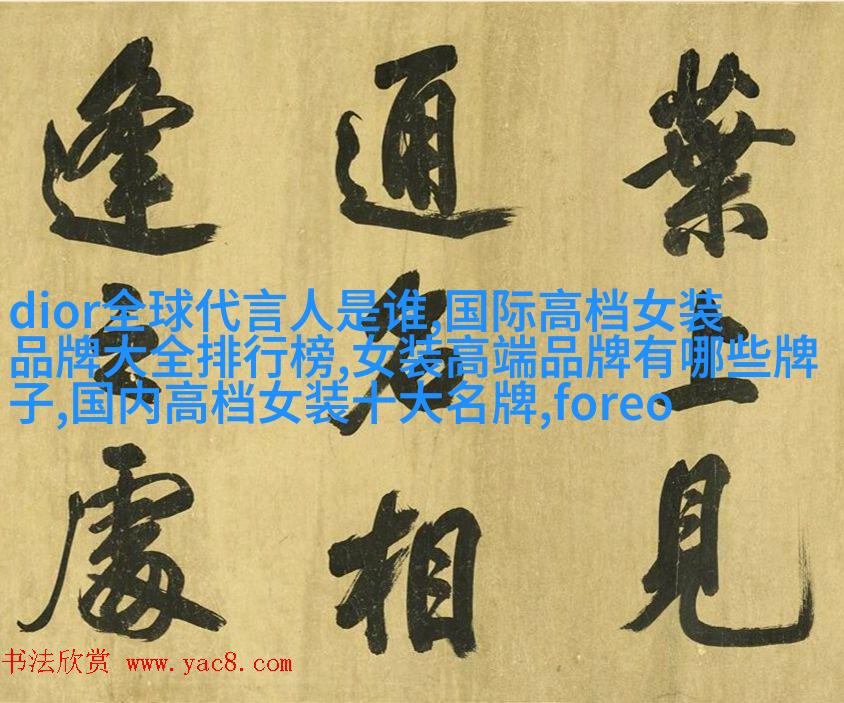 葉上見
通名相
逢處
dior全球代言人是谁,国际高档女装
品牌大全排行榜,女装高端品牌有哪些牌
子,国内高档女装十大名牌,foreo
书法欣赏 www.yac8.com